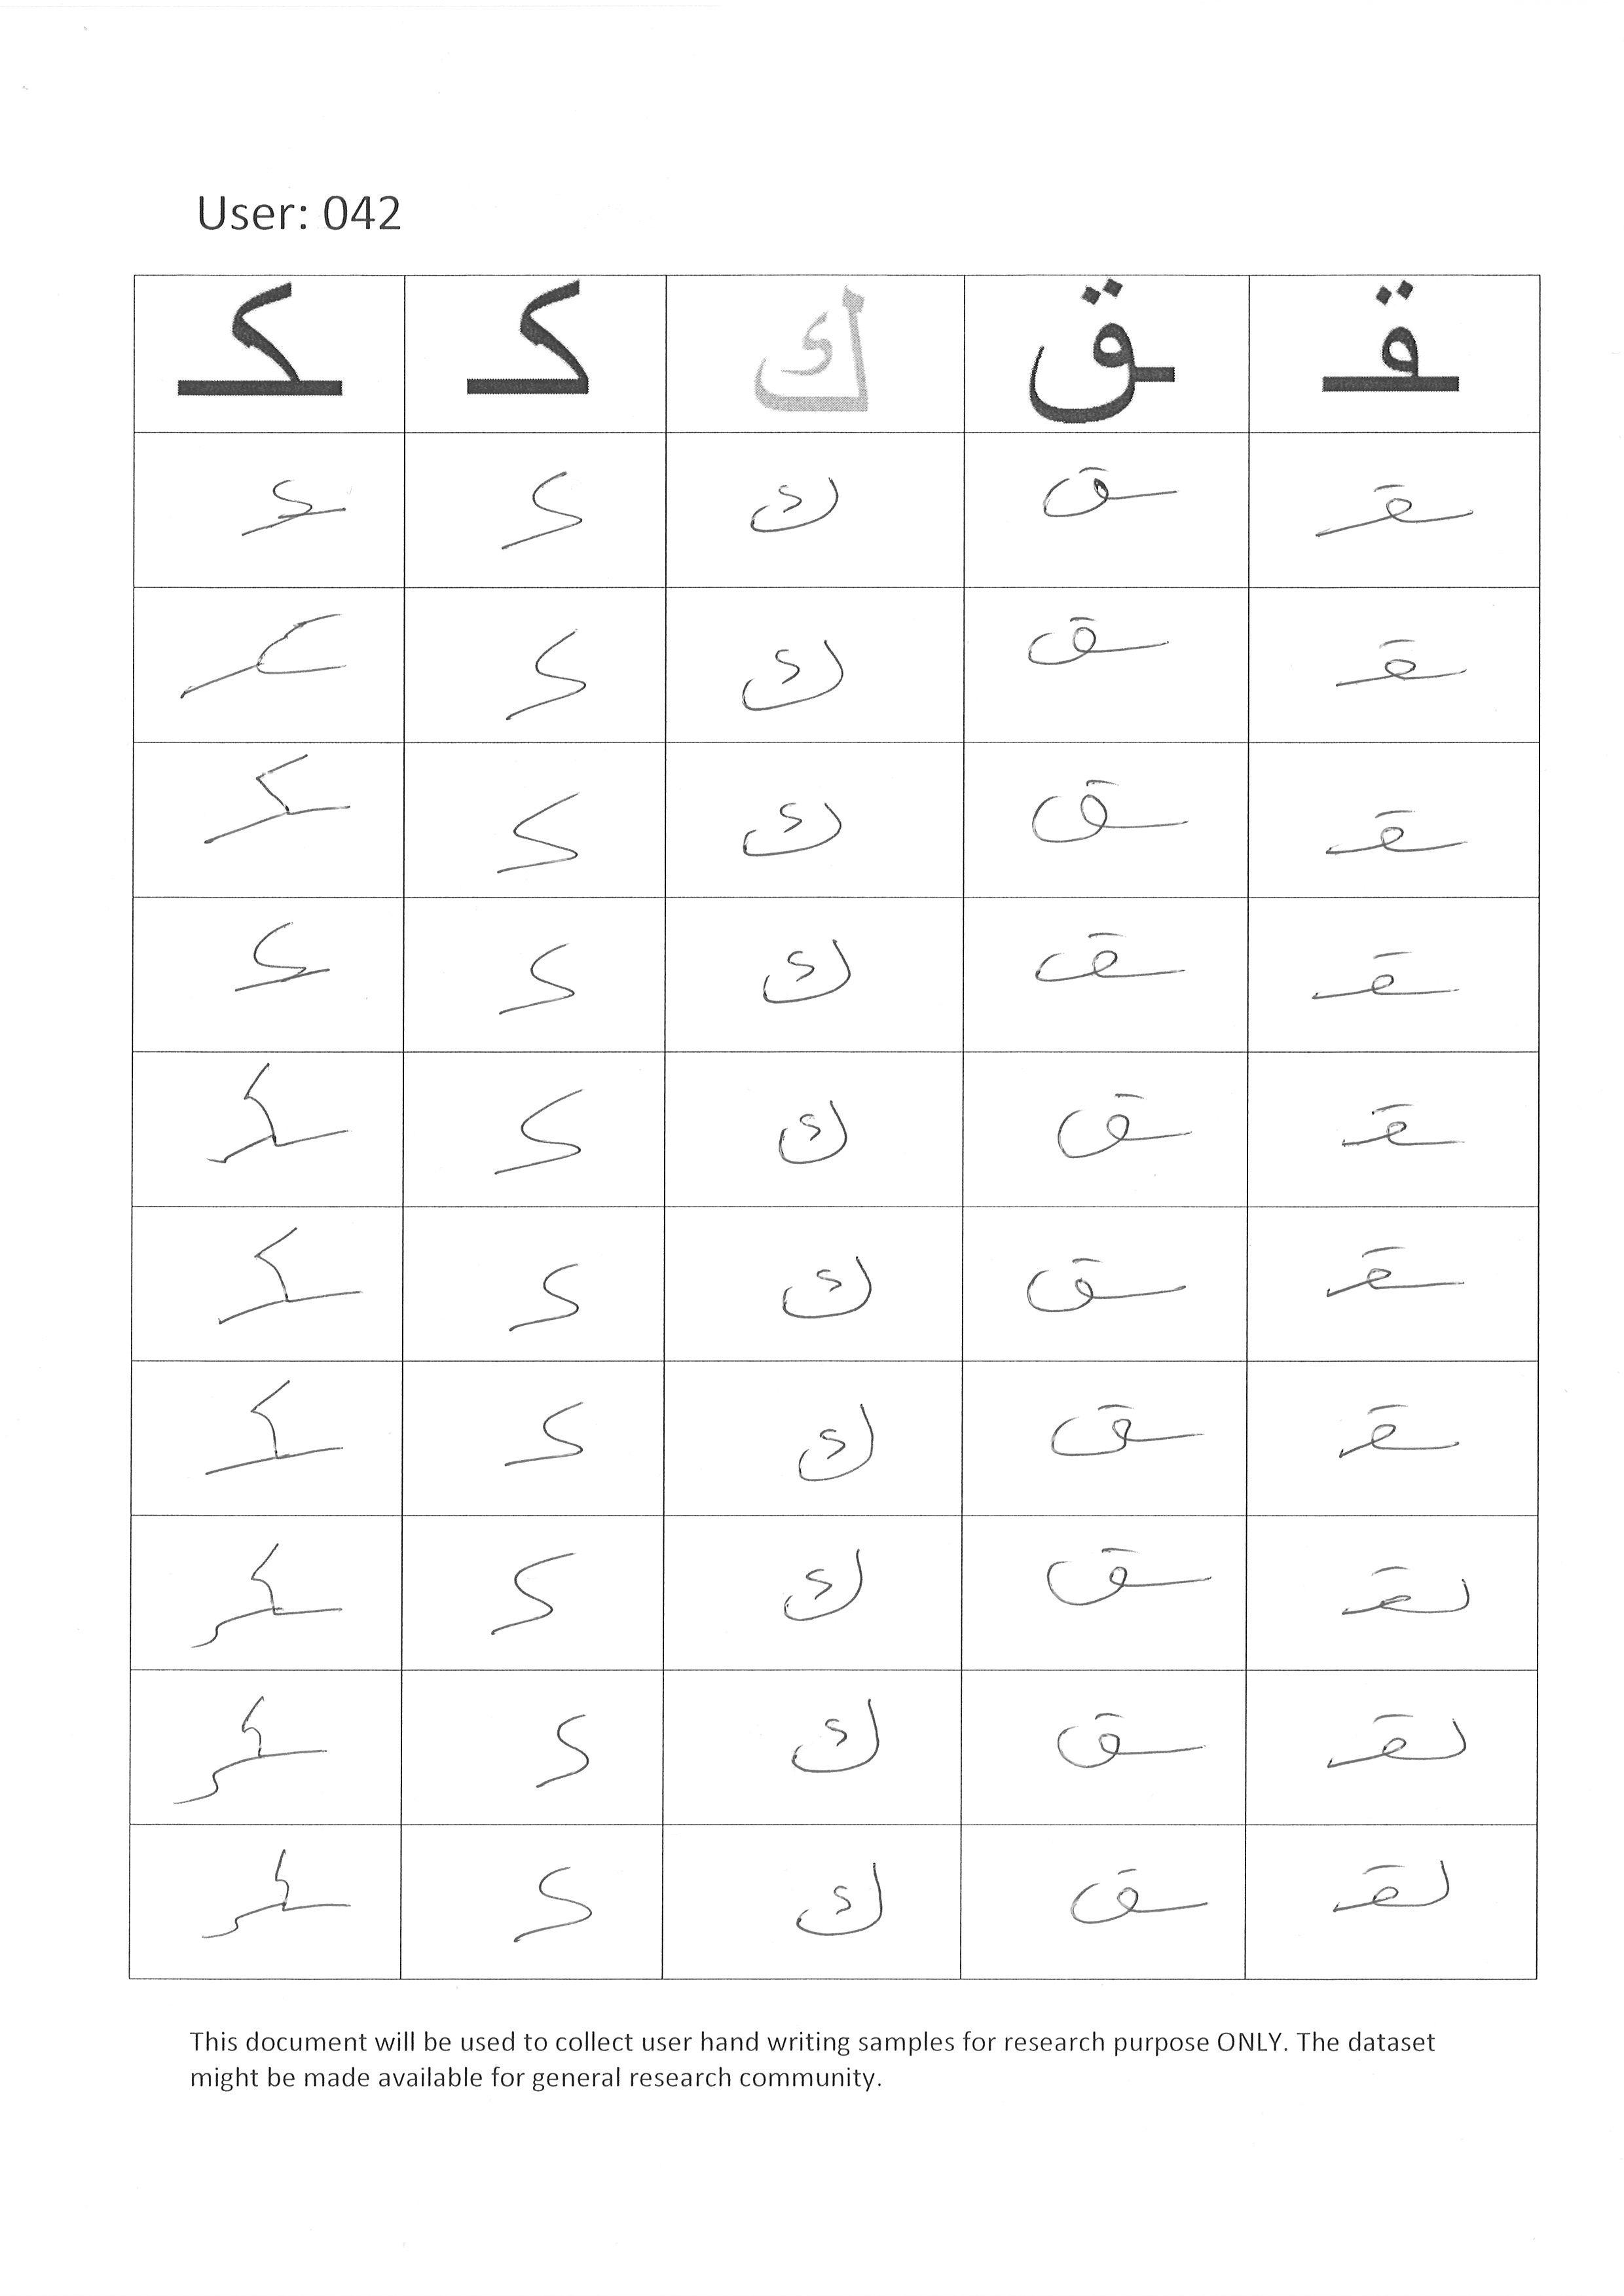 User: 042
ـقـ ـق ك كـ ـكـ
ـقـ ـق ك كـ ـكـ
ـقـ ـق ك كـ ـكـ
ـقـ ـق ك كـ ـكـ
ـقـ ـق ك كـ ـكـ
ـقـ ـق ك كـ ـكـ
ـقـ ـق ك كـ ـكـ
ـقـ ـق ك كـ ـكـ
ـقـ ـق ك كـ ـكـ
ـقـ ـق ك كـ ـكـ
ـقـ ـق ك كـ ـكـ
This document will be used to collect user hand writing samples for research purpose ONLY. The dataset
might be made available for general research community.